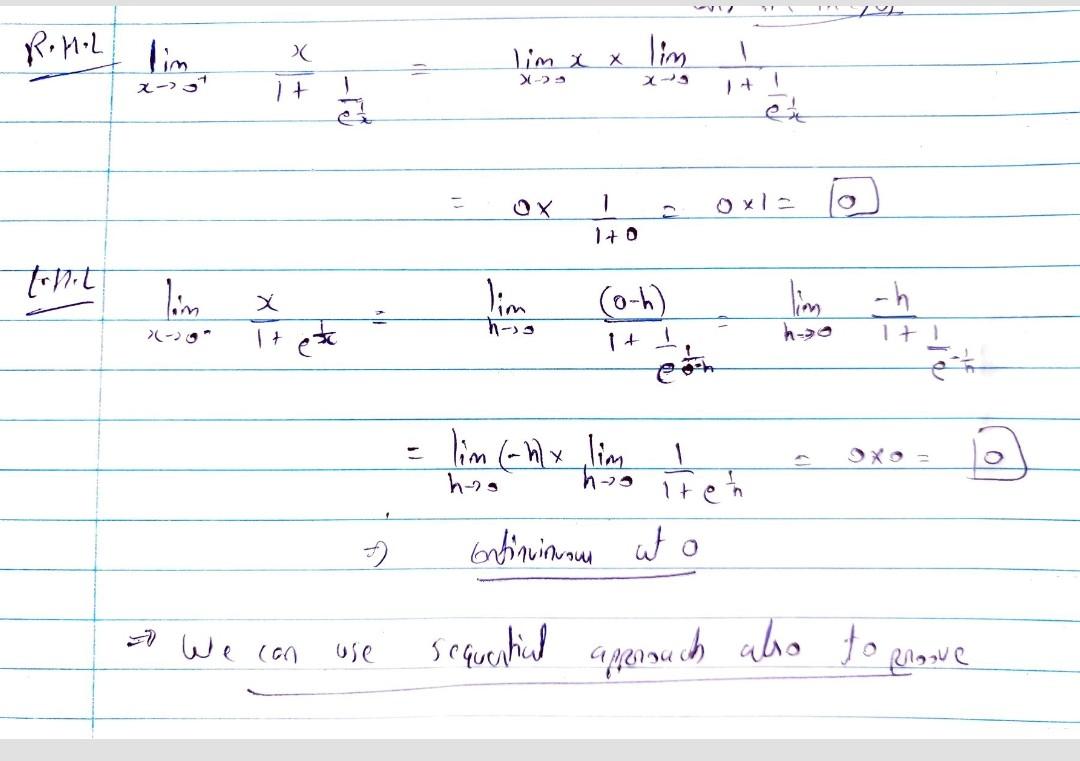 R.H.L lim x→0⁺ x/(1 + 1/e^(1/x)) = lim x→0 x × lim x→0 1/(1 + 1/e^(1/x))
= 0× 1/(1+0) = 0×1 = 0
L.H.L lim x→0⁻ x/(1 + e^(1/x)) = lim h→0 (0-h)/(1 + 1/e^(1/(0-h))) = lim h→0 -h/(1 + 1/e^(-1/h))
= lim h→0 (-h) × lim h→0 1/(1 + e^(1/h)) = 0×0 = 0
⇒ continuous at 0
⇒ We can use sequential approach also to proove